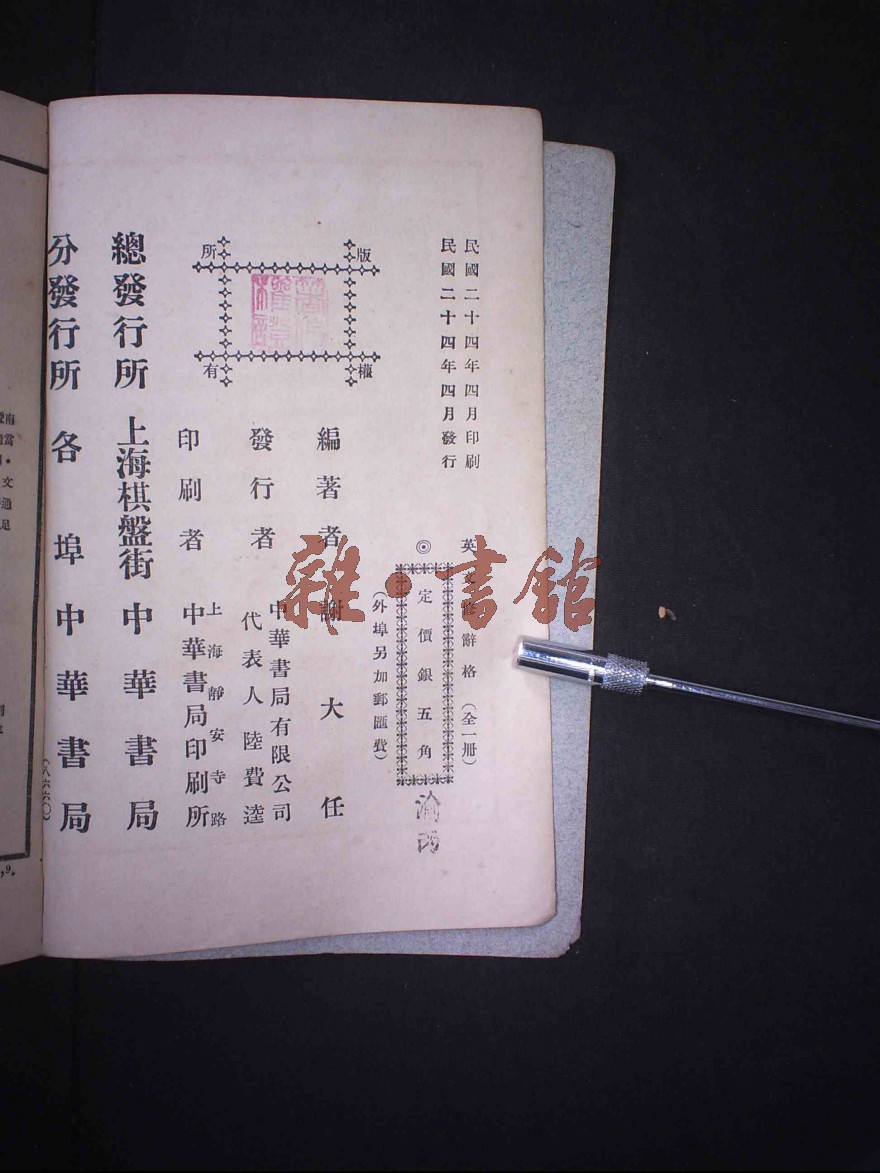 民國二十四年四月印刷
民國二十四年四月發行
英文修辭格(全一册)
◎定價銀五角
(外埠另加郵匯費)
版權所有
編著者 謝大任
發行者 中華書局有限公司
代表人陸費逵
印刷者 上海靜安寺路
中華書局印刷所
總發行所 上海棋盤街 中華書局
分發行所 各埠 中華書局
(八六六〇)
雜·書館